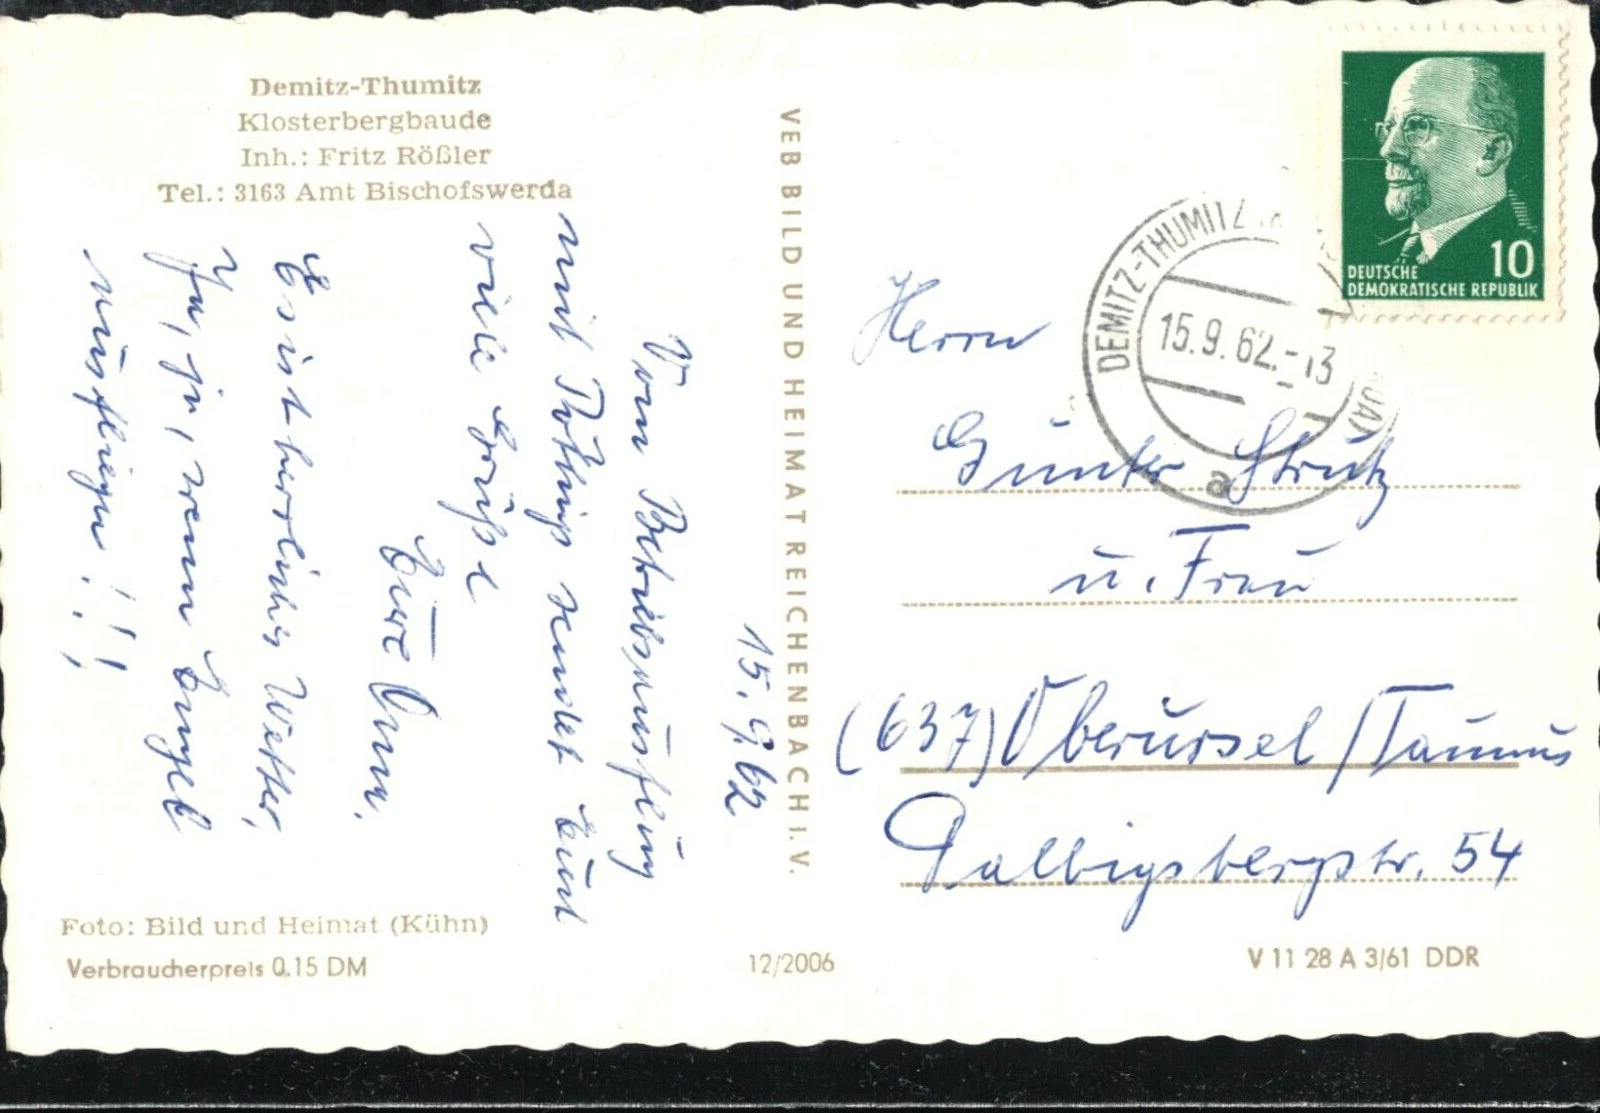 Demitz-Thumitz
Klosterbergbaude
Inh.: Fritz Rößler
Tel.: 3163 Amt Bischofswerda
15.9.62
Vom Betriebsausflug
mit sendet Euch
viele Grüße
Eure
Es ist herrliches Wetter,
Ja, ja, wenn Engel
ausfliegen!!!
Foto: Bild und Heimat (Kühn)
Verbraucherpreis 0,15 DM
VEB BILD UND HEIMAT REICHENBACH I. V.
12/2006
DEUTSCHE 10
DEMOKRATISCHE REPUBLIK
DEMITZ-THUMITZ
15.9.62.-13
a
Herrn
Günter Strutz
u. Frau
(637) Oberursel/Taunus
54
V 11 28 A 3/61 DDR